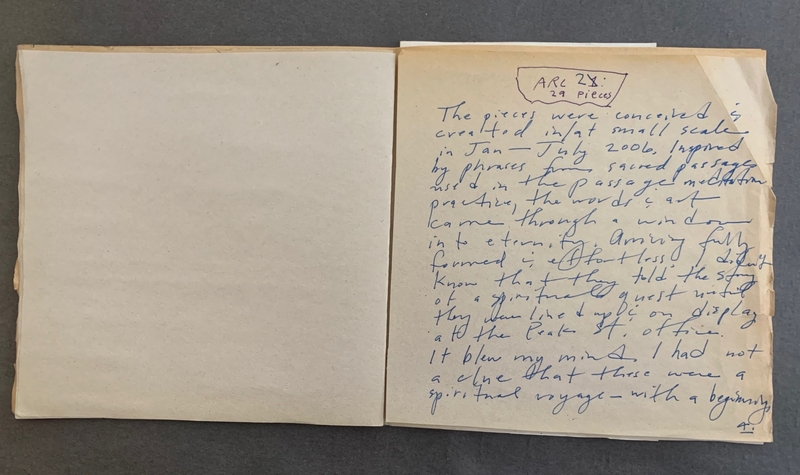 ARC 28:
29 pieces
The pieces were conceived &
created in/at small scale
in Jan — July 2006. Inspired
by phrases from sacred passages
used in the passage meditation
practice, the words & art
came through a window
in to eternity. Arriving fully
formed & effortless I didn't
know that they told the story
of a spiritual quest until
they were lined up & on display
at the Peaks St. office.
It blew my mind. I had not
a clue that these were a
spiritual voyage — with a beginning,